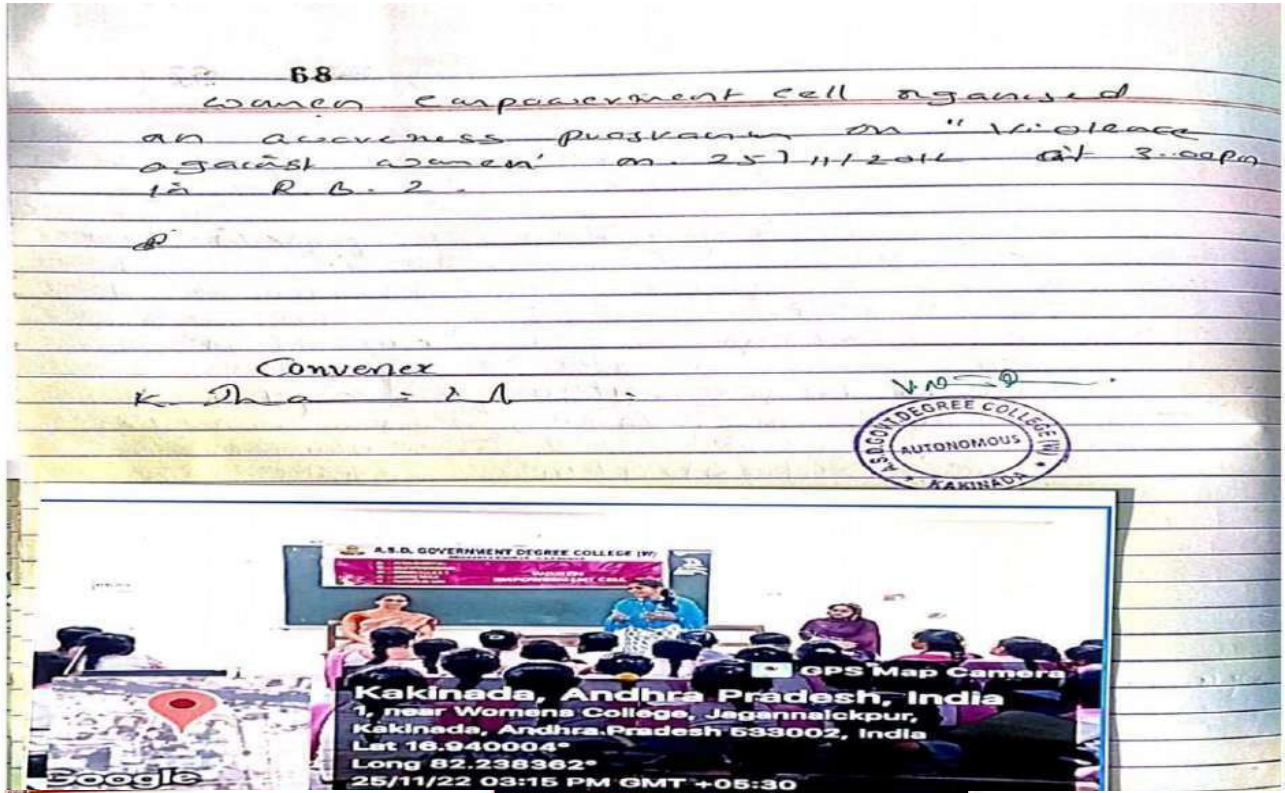 68
women empowerment cell organised
an awareness program on "Violence
against women' on at 3.00pm
in R.B. 2.
Convener
K.
A.S.D.GOVT.DEGREE COLLEGE (W)
AUTONOMOUS
KAKINADA
A.S.D. GOVERNMENT DEGREE COLLEGE (W)
WOMEN
EMPOWERMENT CELL
GPS Map Camera
Kakinada, Andhra Pradesh, India
1, near Womens College, Jagannaickpur,
Kakinada, Andhra Pradesh 533002, India
Lat 16.940004°
Long 82.238362°
25/11/22 03:15 PM GMT +05:30
Google